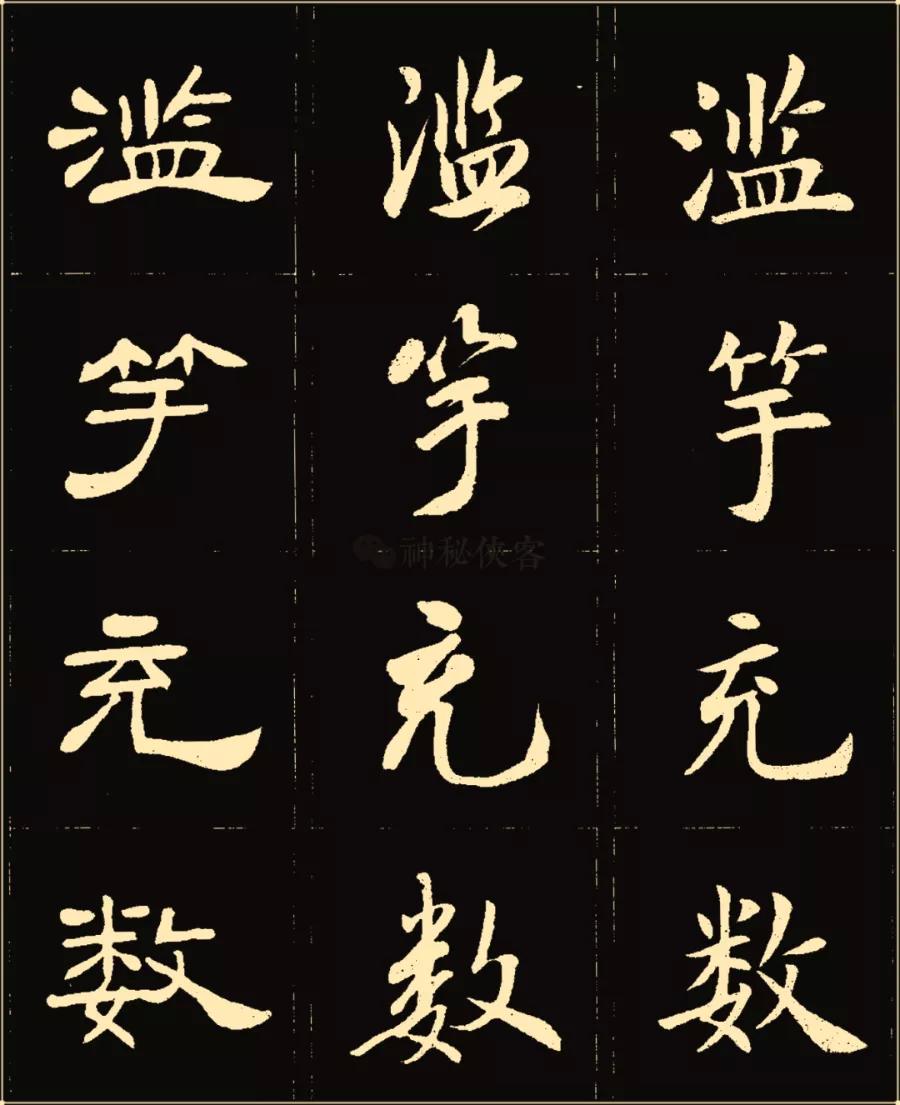 滥 滥 滥
竽 竽 竽
神秘侠客
充 充 充
数 数 数